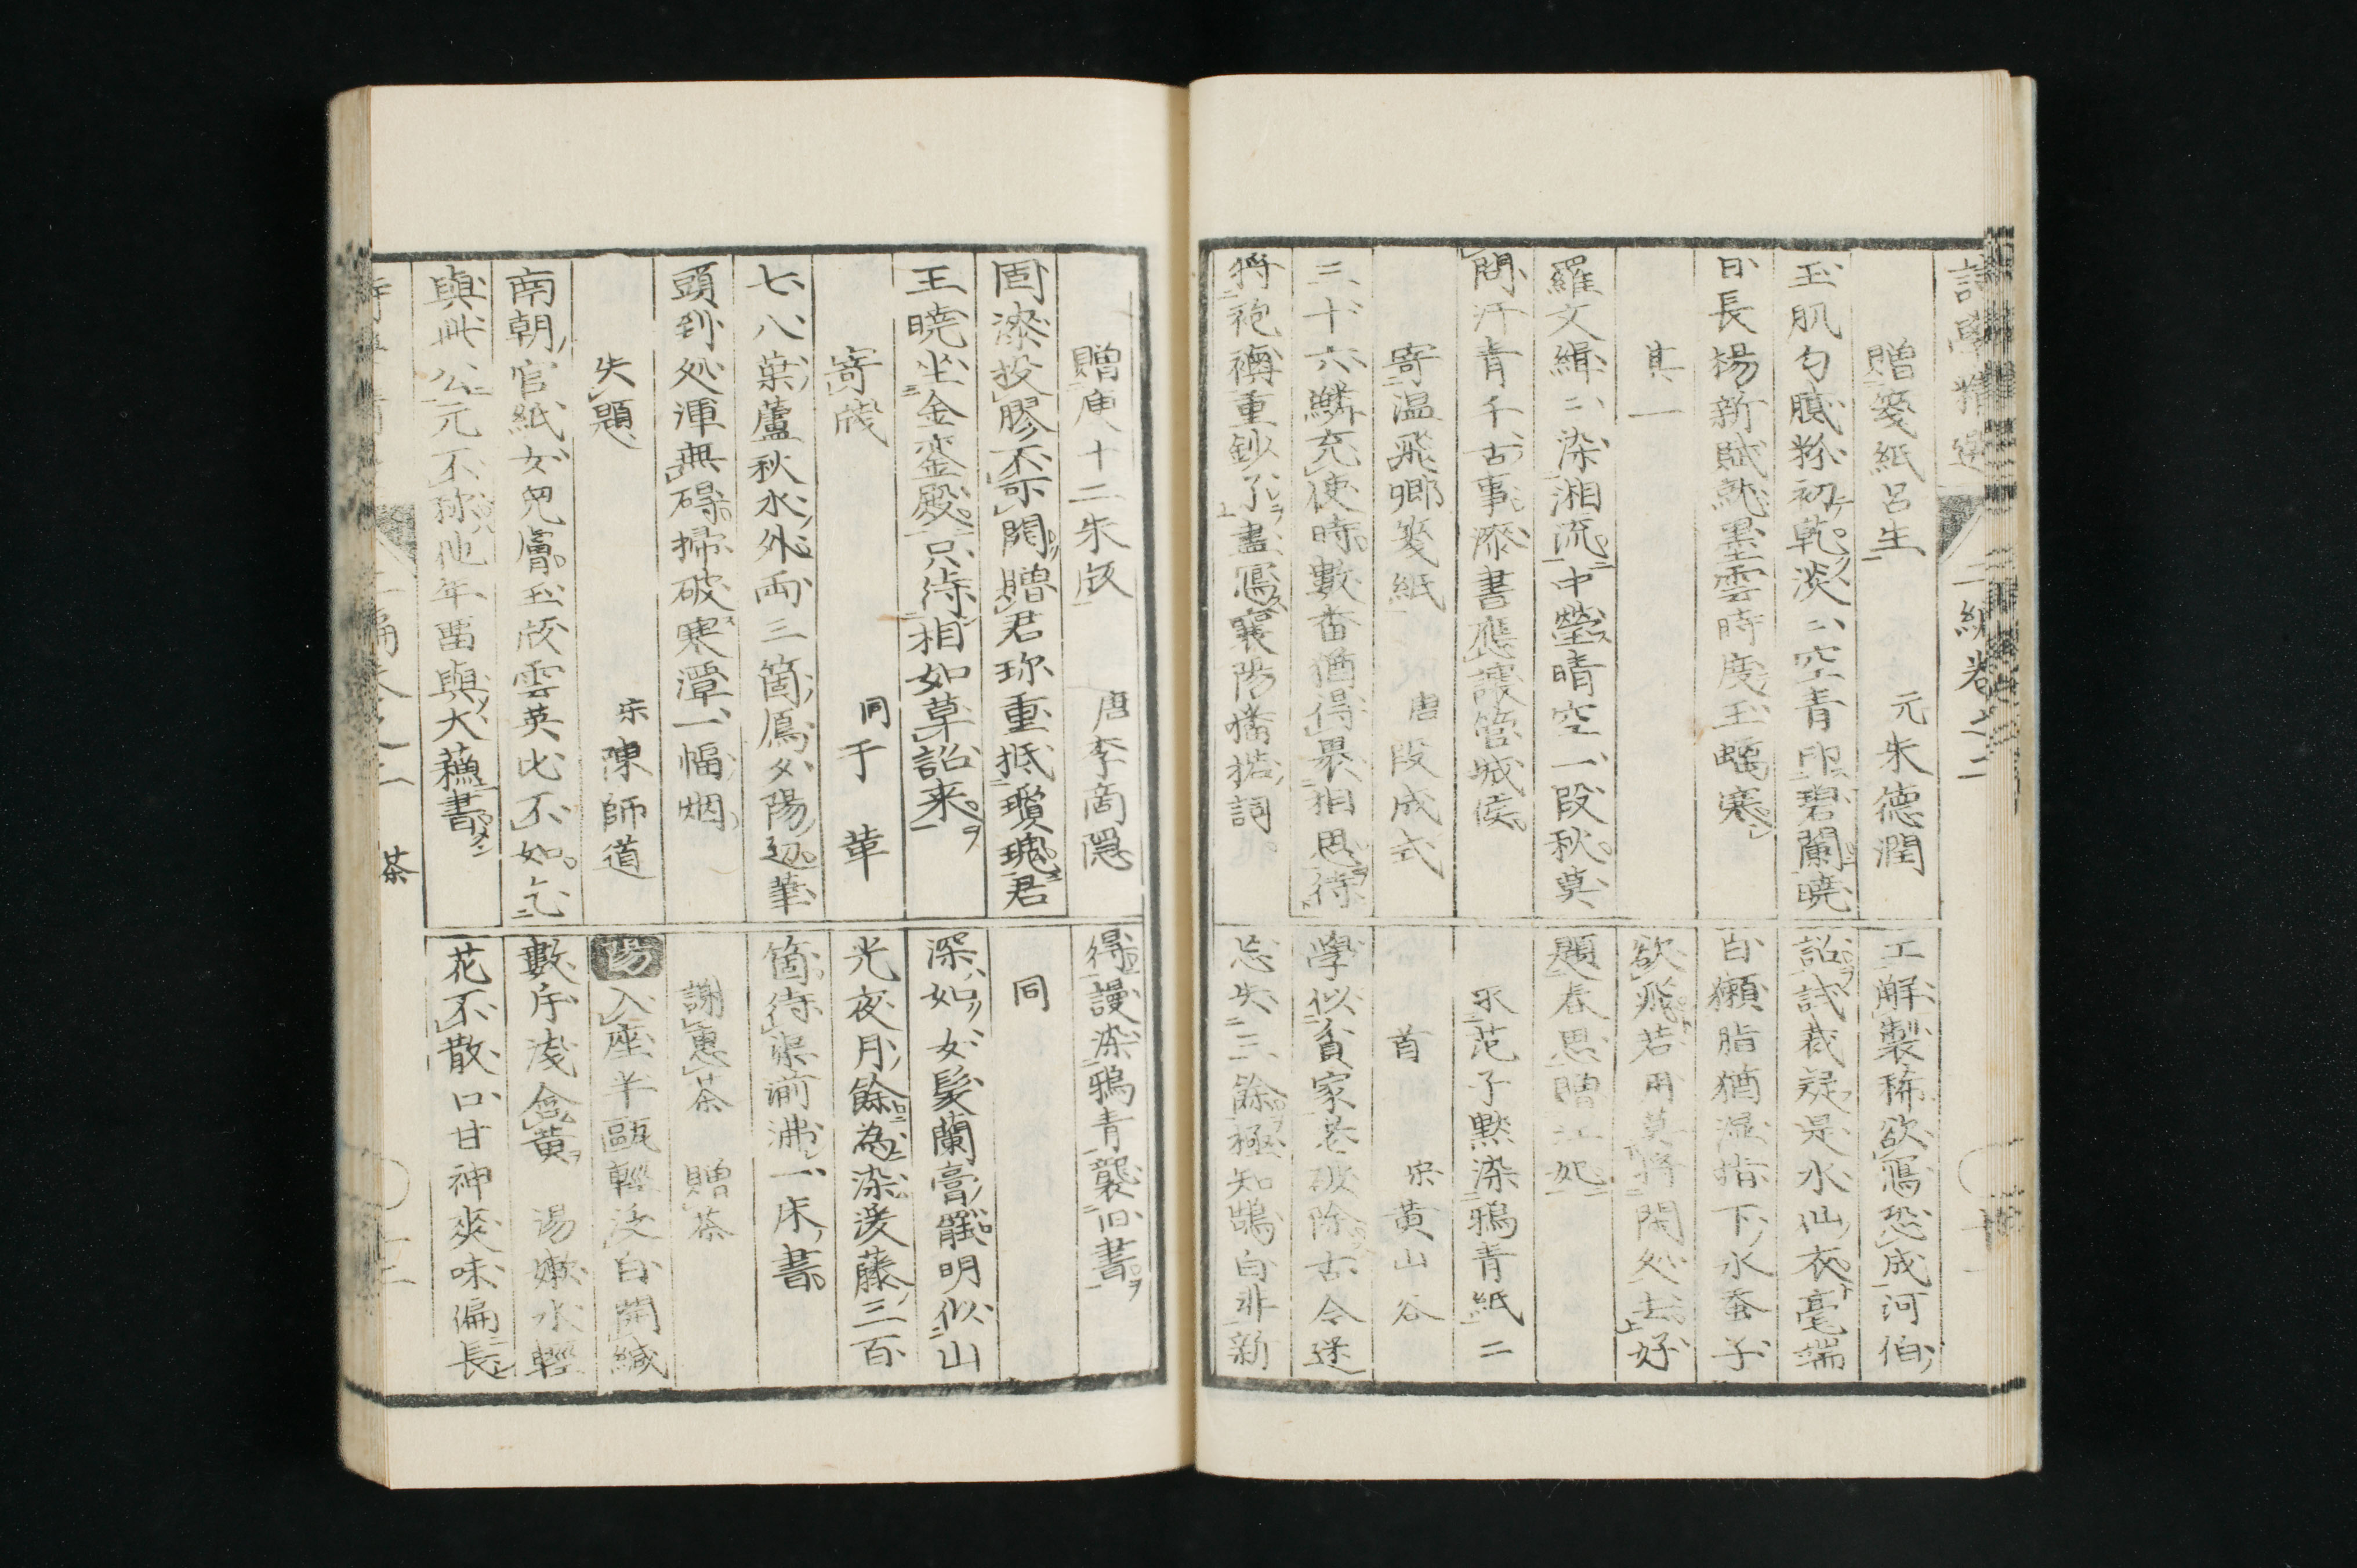 二編卷之二
贈箋紙呂生 元朱德潤
玉肌勻膩粉初乾淡〻空青印碧闌曉
日長楊新賦就墨雲時度玉蟾寒
其一
羅文緝〻染湘流中瑩晴空一段秋莫
問汗青千古事漆書應讓管城侯
寄温飛卿箋紙 唐段成式
三十六鱗充使時數番猶得裹相思待
將袍襖重鈔了盡寫襄陽播掿詞
工解製稀欲寫恐成河伯
詔試裁疑是水仙衣毫端
白獺脂猶濕指下氷蚕子
欲飛若用莫將閑处去好
題春思贈江妃
求范子黙染鴉青紙二
首 宋黄山谷
學似貧家老破除古今迷
忘失三餘極知鵠白非新
得謾染鴉青襲旧書
同
深如女髮蘭膏罷明似山
光夜月餘為染溪藤三百
箇待渠湔沸一床書
謝惠茶 贈茶
陽入座半甌輕泛白開緘
數片淺含黄 湯嫩水輕
花不散口甘神爽味偏長
贈庾十二朱版 唐李商隱
固漆投膠不可開贈君珎重抵瓊瑰君
王曉坐金鑾殿只待相如草詔来
寄牋 同于華
七八葉蘆秋水外両三箇鳫夕陽边筆
頭到处渾無碍掃破寒潭一幅烟
失題 宋陳師道
南朝官紙女兒膚玉版雲英比不如乞
與此公元不称他年畱與大蘓書
茶